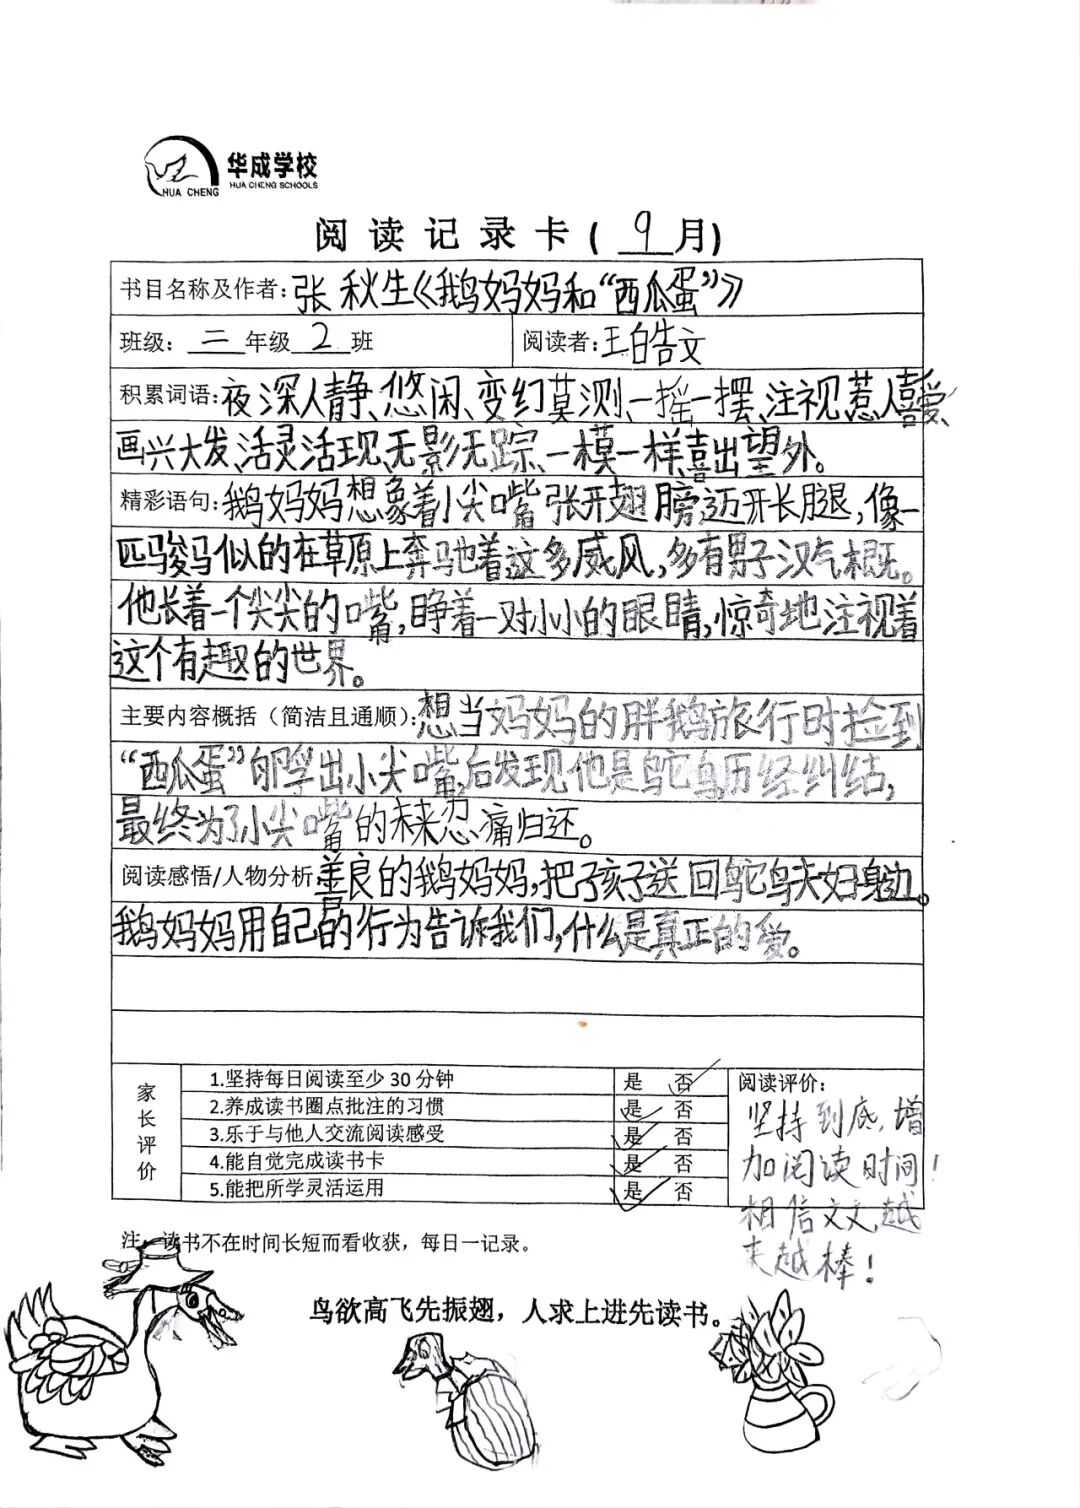 华成学校
HUA CHENG
HUA CHENG SCHOOLS
阅读记录卡(9月)
书目名称及作者:张秋生《鹅妈妈和“西瓜蛋”》
班级:三年级2班 阅读者:王皓文
积累词语:夜深人静、悠闲、变幻莫测、一摇一摆、注视、惹人喜爱、
画兴大发、活灵活现、无影无踪、一模一样、喜出望外。
精彩语句:鹅妈妈想象着小尖嘴张开翅膀,迈开长腿,像一
匹骏马似的在草原上奔驰着这多威风,多有男子汉气概。
他长着一个尖尖的嘴,睁着一对小小的眼睛,惊奇地注视着
这个有趣的世界。
主要内容概括(简洁且通顺):想当妈妈的胖鹅旅行时捡到
“西瓜蛋”孵出小尖嘴,后发现他是鸵鸟,历经纠结,
最终为了小尖嘴的未来忍痛归还。
阅读感悟/人物分析:善良的鹅妈妈,把孩子送回鸵鸟夫妇身边。
鹅妈妈用自己的行为告诉我们,什么是真正的爱。
家长评价
1.坚持每日阅读至少30分钟 是 否
2.养成读书圈点批注的习惯 是 否
3.乐于与他人交流阅读感受 是 否
4.能自觉完成读书卡 是 否
5.能把所学灵活运用 是 否
阅读评价:
坚持到底,增
加阅读时间!
相信文文越
来越棒!
注:读书不在时间长短而看收获,每日一记录。
鸟欲高飞先振翅,人求上进先读书。